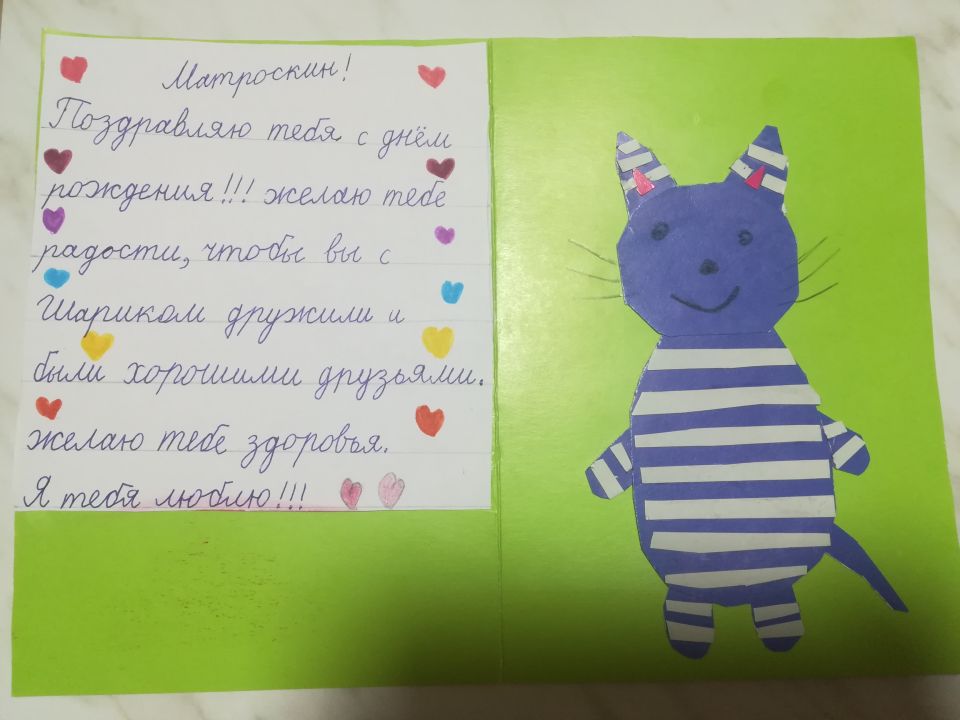 Матроскин!
Поздравляю тебя с днём
рождения!!! желаю тебе
радости, чтобы вы с
Шариком дружили и
были хорошими друзьями.
желаю тебе здоровья.
Я тебя люблю!!!